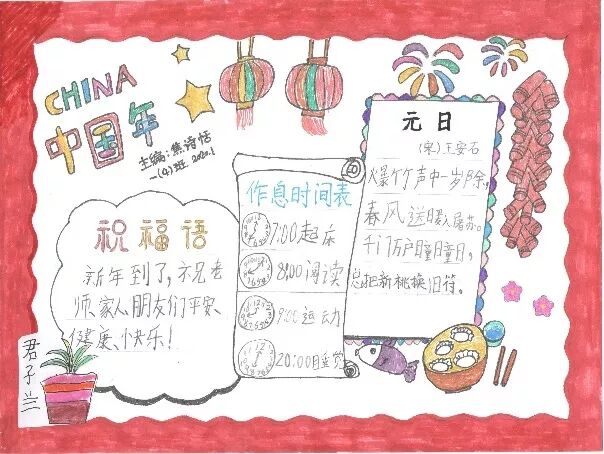 CHINA
中国年
主编:焦诗恬
一(4)班 2020.1
祝福语
新年到了,祝老
师、家人、朋友们平安、
健康、快乐!
君子兰
作息时间表
7:00起床
8:00阅读
9:00运动
20:00睡觉
元日
(宋)王安石
爆竹声中一岁除,
春风送暖入屠苏。
千门万户曈曈日,
总把新桃换旧符。